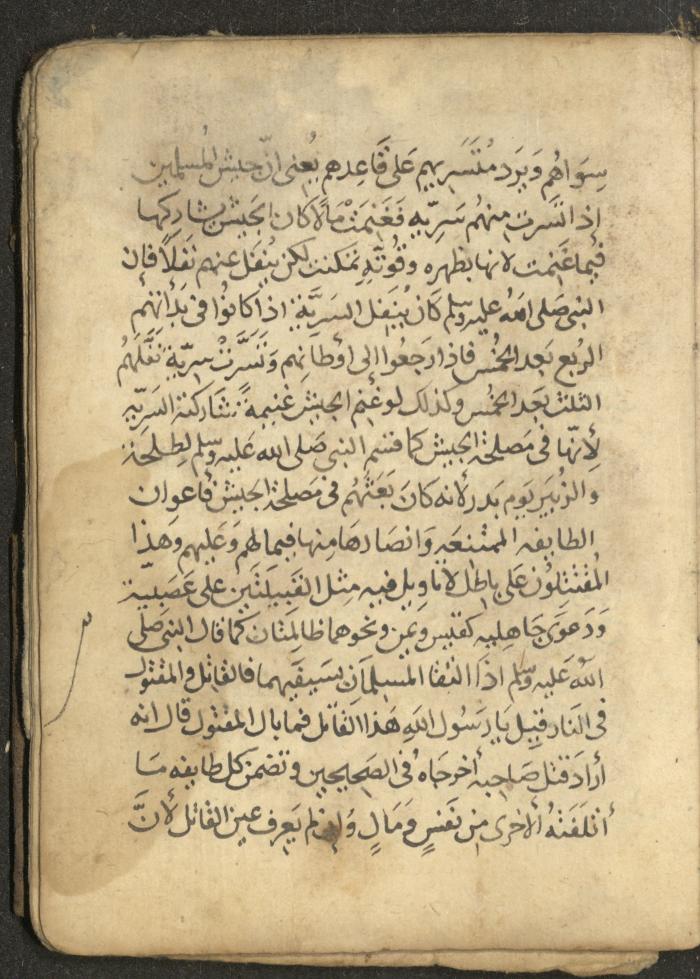 سِوَاهُم وَيَرد مُتَسَريهم عَلى قَاعِدهم يُعنى انّ جيش المُسلمين
إذ اتسرت منهُم سَريه فَغَنِمَتْ مَالًا كان الجَيْش يشاركها
فيما غَنِمت لانها بظهره وقُوتّهِ تمكنت لكن يُنفَل عنهم نَفَلاً فإن
النبى صَلى الله عليه وسلم كَان يُنَفل السَريَّة اذا كَانُوا فى بَدأتِهم
الربُع بَعد الخمُس فاذا رَجَعُوا الى أوطَانهم وَتَسَرَّتْ سِريّة نفَّلَهُم
الثلث بَعَد الخمُس وكذلك لو غنِم الجيش غنيمةً شاركته السَريّه
لِأنّها فى مَصلحة الجيش كما قسَم النبى صَلى الله عَليه وسلم لِطلحة
والزُبَير يَوم بَدر لانه كانَ بَعَثَهُم فى مَصلحة الجَيش فأعوان
الطايفه الممتنعَه وَانصَارهَا مِنها فيما لهم وَعَليهم وَهذا
المُقتتلوُن عَلى بَاطل لا تاويل فيه مِثل القَبيلتَين على عَصَبِيّة
وَدَعوَى جَاهليه كقيس ويمن ونحوهما ظالِمتَان كما قال النبى صَلى
اللهُ عَليه وسلم اذا التقا المسلِمَان بسَيفَيهما فالقاتل والمقتول
فى النار قيِيل يَا رسُول اللهِ هَذا القَاتل فما بال المقتول قال انه
أرَادَ قتل صَاحِبه أخرجَاهُ فى الصَحيحين وتضمن كل طايفه مَا
أتلَفَتهُ الاخرى مِن نَفسٍ وَمَالٍ وَإن لم يَعرف عين القاتل لأنَّ